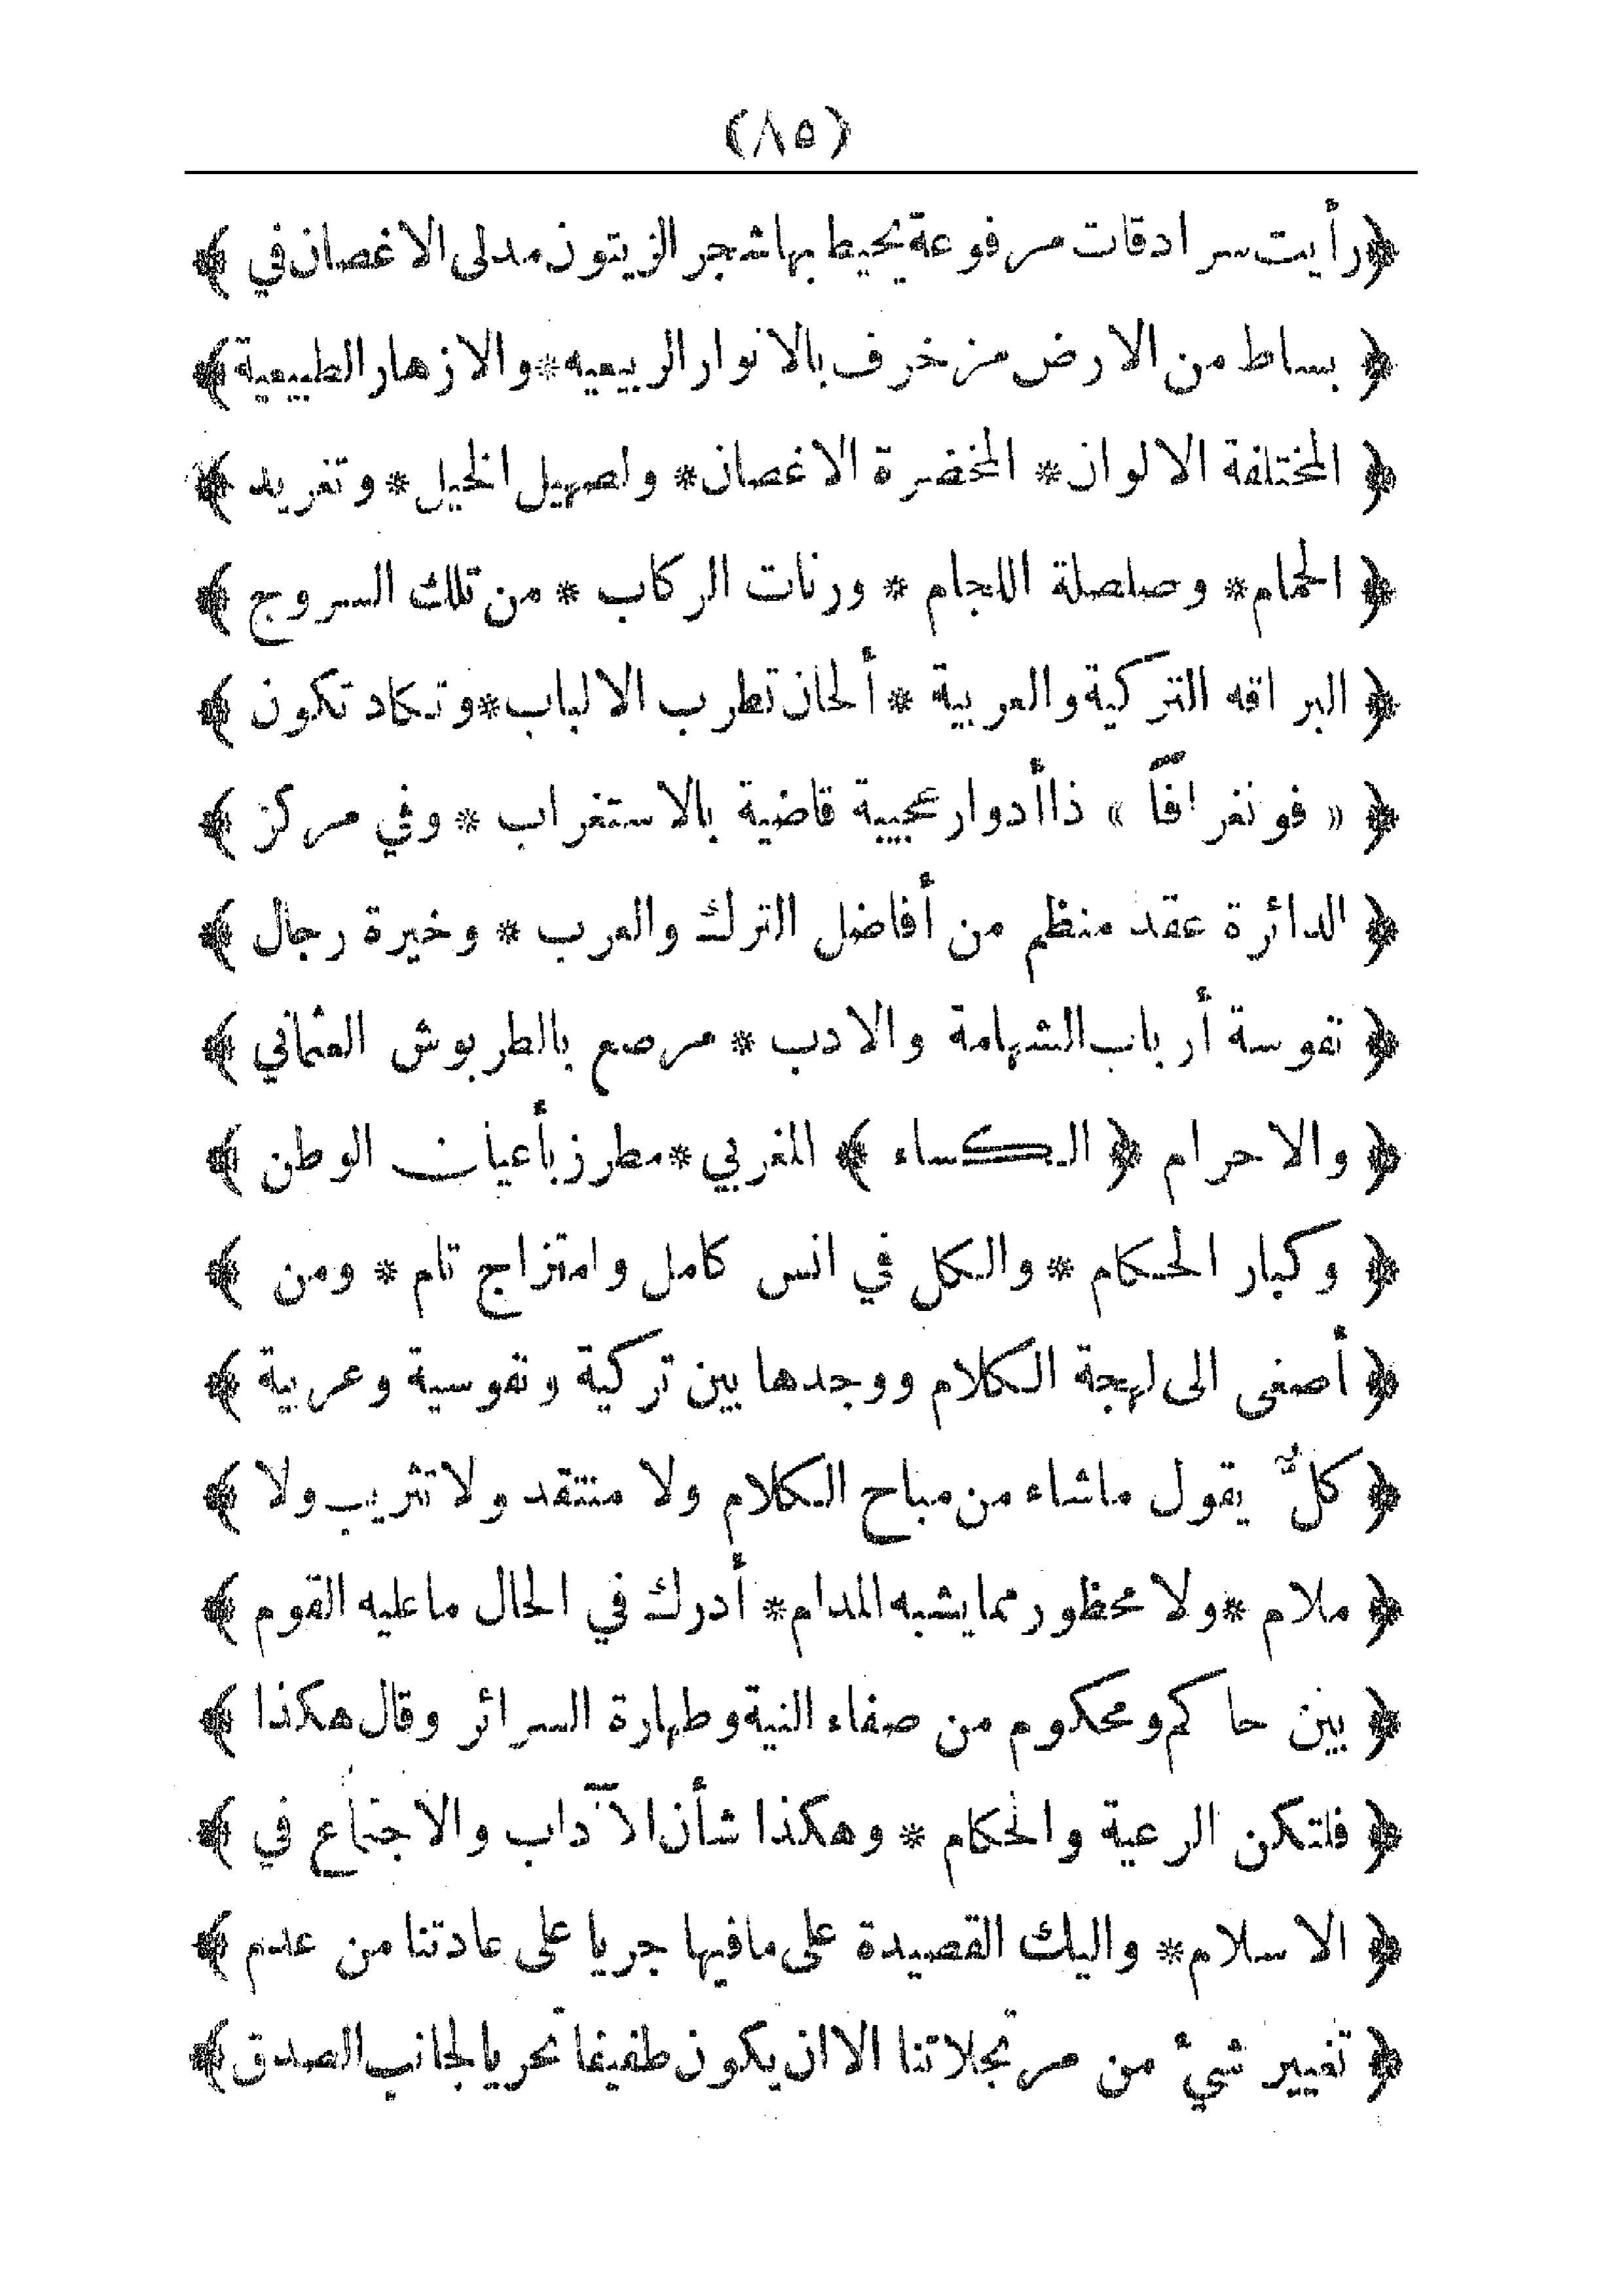 (٨٥)
﴿رأيت سرادقات مرفوعة يحيط بها شجر الزيتون مدلى الاغصان في ﴾
﴿ بساط من الارض مزخرف بالانوار الربيعيه*والازهار الطبيعية﴾
﴿ المختلفة الالوان* المخضرة الاغصان* ولصهيل الخيل* وتغريد ﴾
﴿ الحمام* وصلصلة اللجام * ورنات الركاب * من تلك السروج ﴾
﴿ البراقه التركية والعربية * ألحان تطرب الالباب*وتكاد تكون ﴾
﴿ « فونغرافاً » ذا أدوار عجيبة قاضية بالاستغراب * وفي مركز ﴾
﴿ الدائرة عقد منظم من أفاضل الترك والعرب * وخيرة رجال ﴾
﴿ نفوسة أرباب الشهامة والادب * مرصع بالطربوش العثماني ﴾
﴿ والاحرام ﴿ الكساء ﴾ المغربي*مطرز بأعيان الوطن ﴾
﴿ وكبار الحكام * والكل في انس كامل وامتزاج تام * ومن ﴾
﴿ أصغى الى لهجة الكلام ووجدها بين تركية ونفوسية وعربية ﴾
﴿ كلٌّ يقول ماشاء من مباح الكلام ولا منتقد ولا تثريب ولا ﴾
﴿ ملام *ولا محظور مما يشبه المدام* أدرك في الحال ما عليه القوم ﴾
﴿ بين حاكم ومحكوم من صفاء النية وطهارة السرائر وقال هكذا ﴾
﴿ فلتكن الرعية والحكام * وهكذا شأن الآداب والاجتماع في ﴾
﴿ الاسلام* واليك القصيدة على مافيها جريا على عادتنا من عدم ﴾
﴿ تغيير شيء من مرتجلاتنا الا ان يكون طفيفا تحريا لجانب الصدق﴾